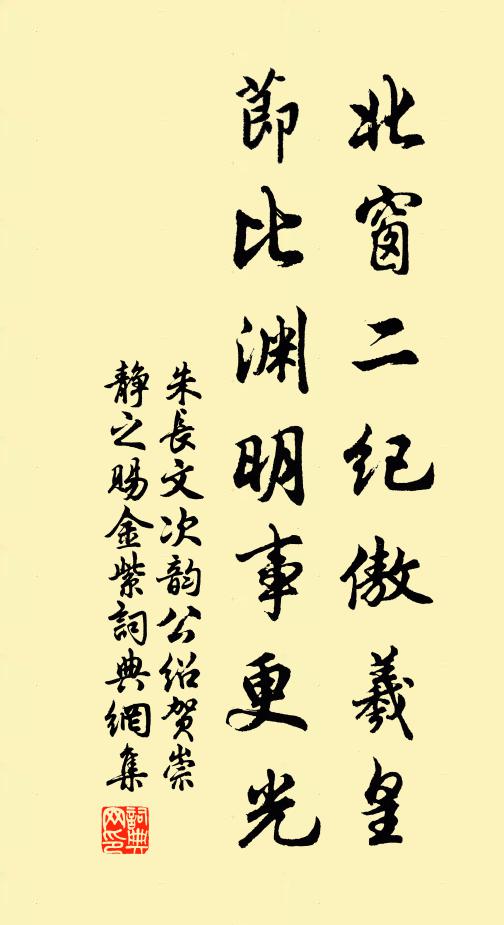 北窗二纪傲羲皇
節比渊明事更光
朱長文次韵公绍贺崇
静之赐金紫詞典網集
詞典
网印